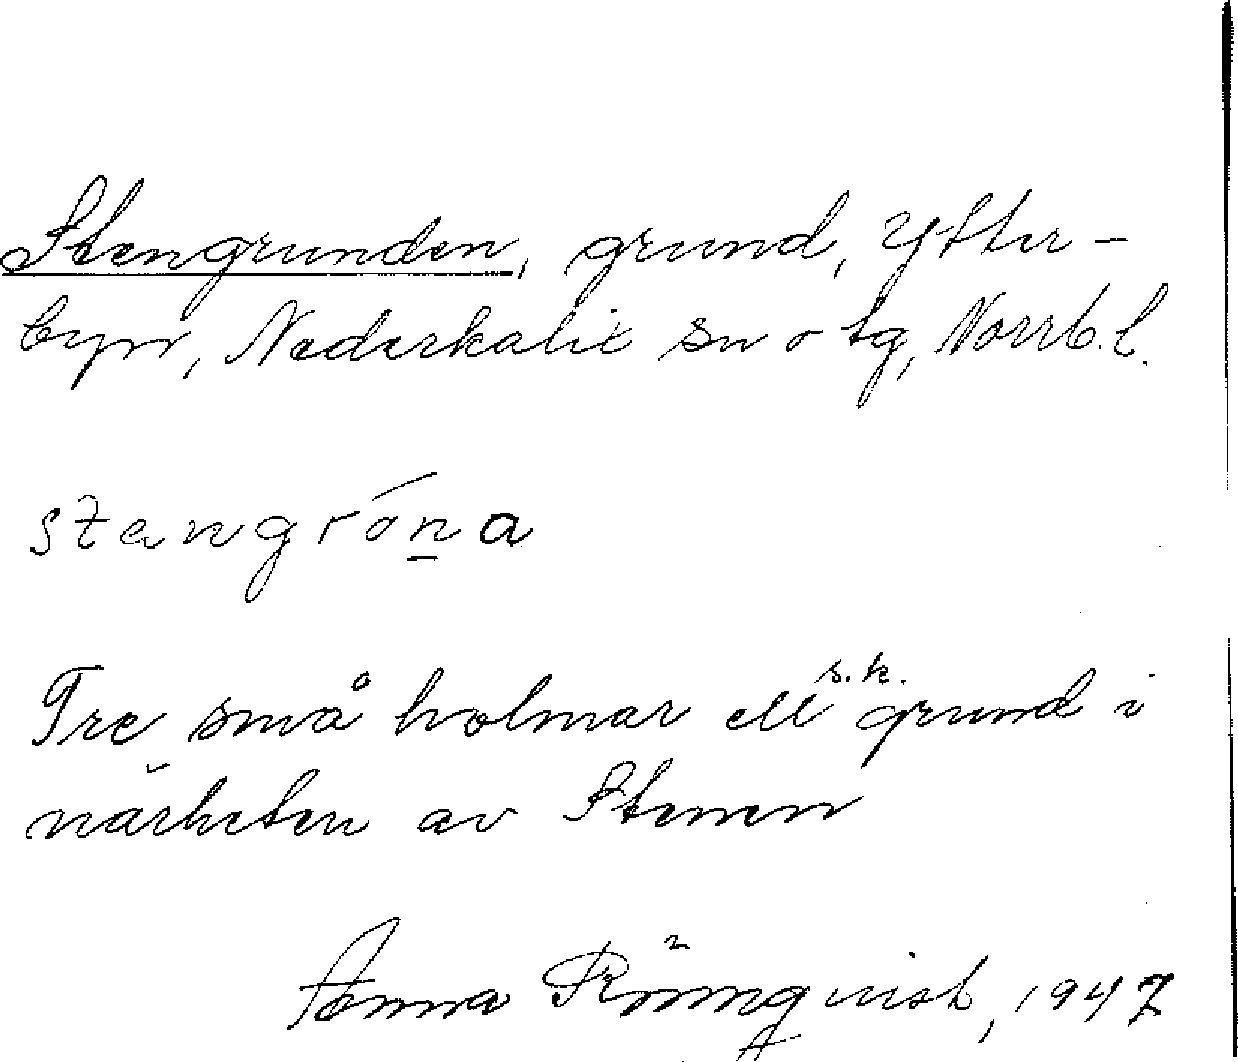 Stengrunden, grund, Ytter-
byn, Nederkalix sn o tg, Norrb. l.
stengróna
Tre små holmar ell s.k. grund i
närheten av Stenen
Anna Rönnqvist, 1947